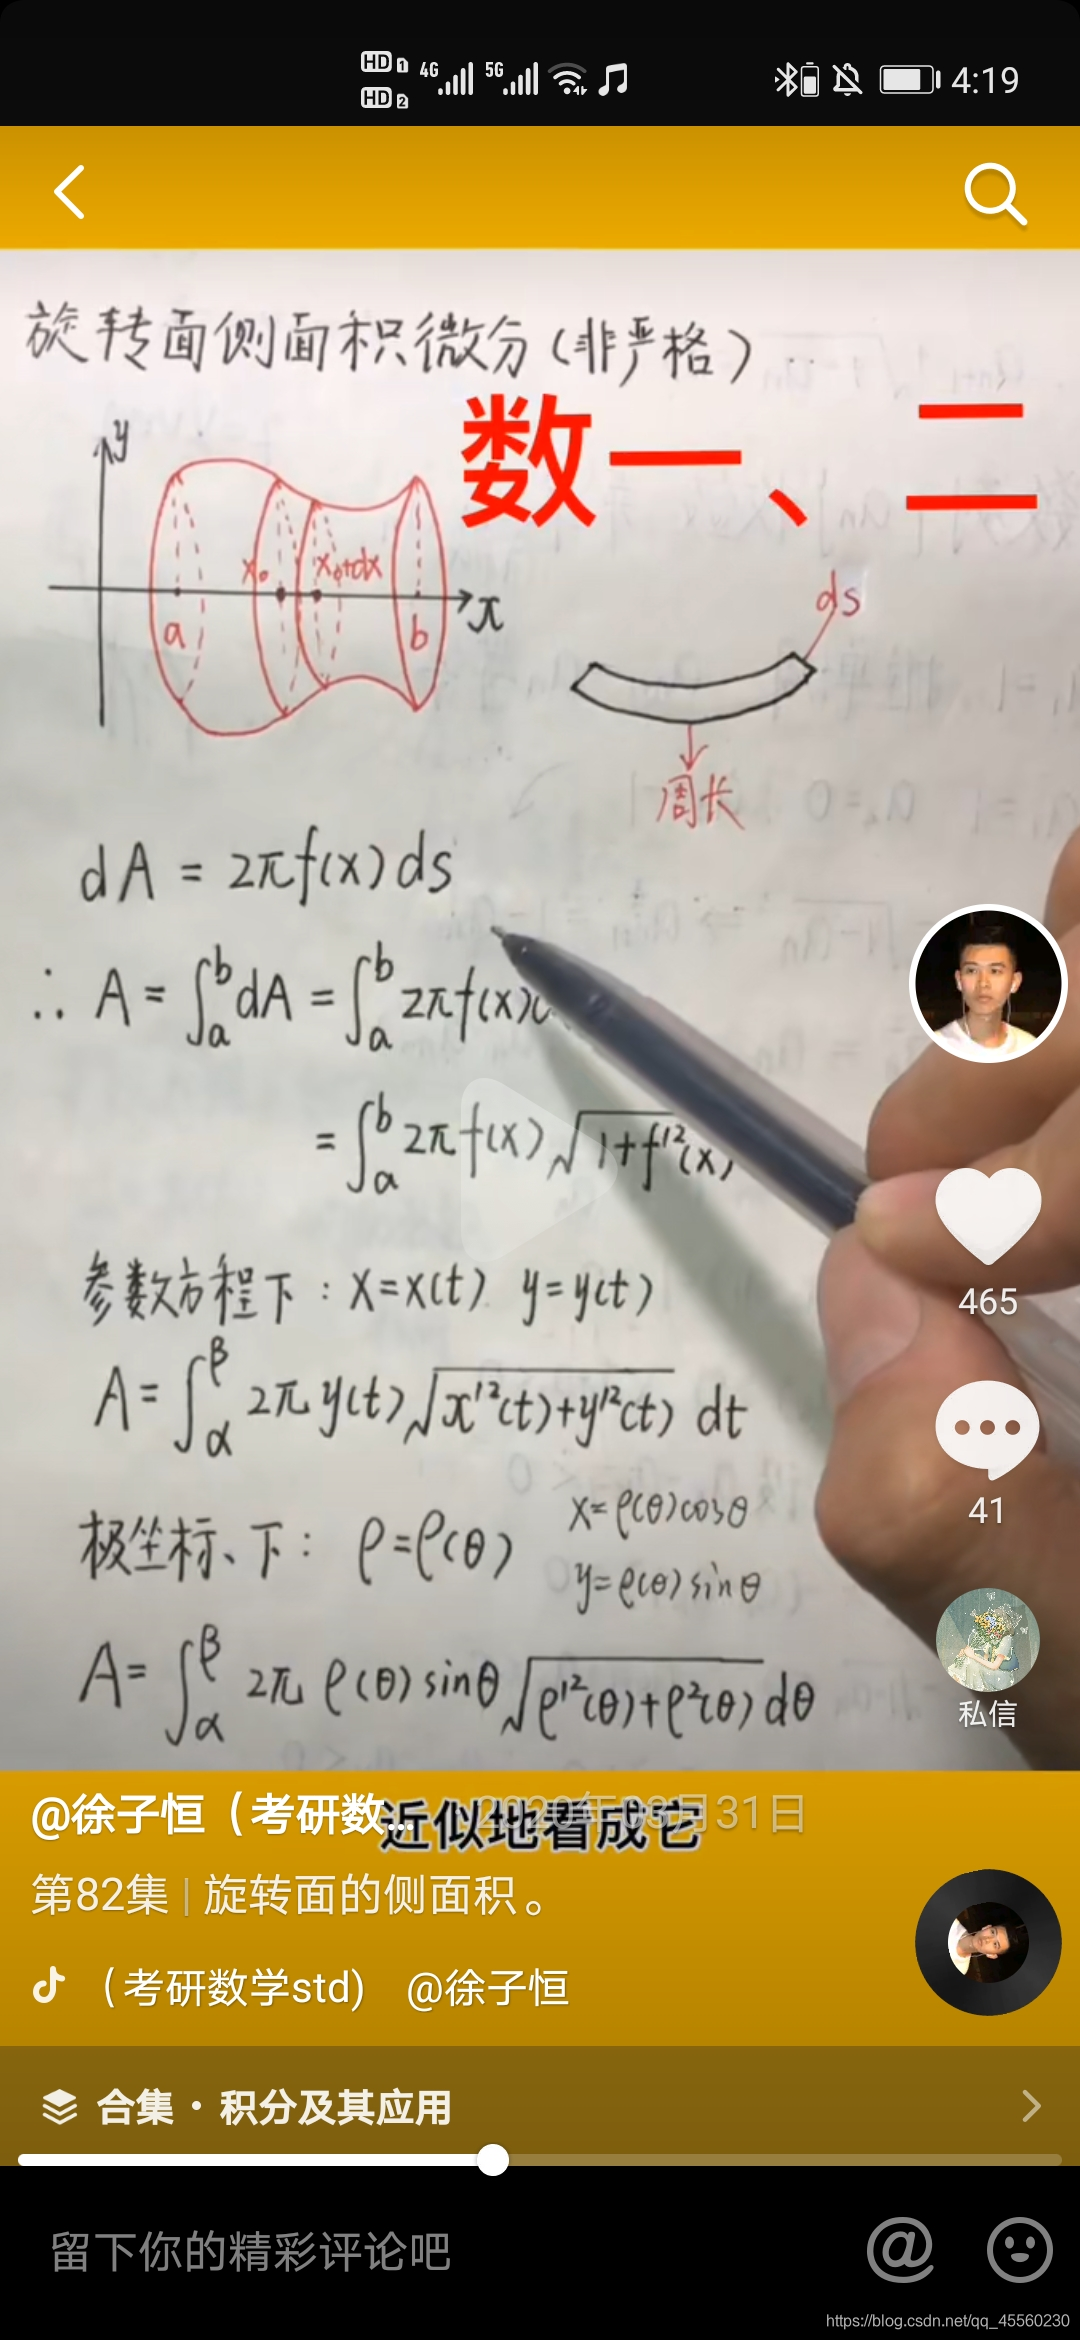 HD 1 4G 5G 4:19
HD 2
旋转面侧面积微分(非严格)
数一、二
y
x₀ x₀+dx
a b x
ds
周长
dA = 2πf(x)ds
∴ A = ∫ₐᵇ dA = ∫ₐᵇ 2πf(x)
= ∫ₐᵇ 2πf(x)√1+f'²(x)
参数方程下: x=x(t) y=y(t)
A= ∫_α^β 2πy(t)√x'²(t)+y'²(t) dt
极坐标、下: ρ=ρ(θ) x=ρ(θ)cosθ
y=ρ(θ)sinθ
A= ∫_α^β 2π ρ(θ)sinθ√ρ'²(θ)+ρ²(θ) dθ
465
41
私信
@徐子恒(考研数...
近似地看成它
第82集 | 旋转面的侧面积。
(考研数学std) @徐子恒
合集·积分及其应用
留下你的精彩评论吧
https://blog.csdn.net/qq_45560230